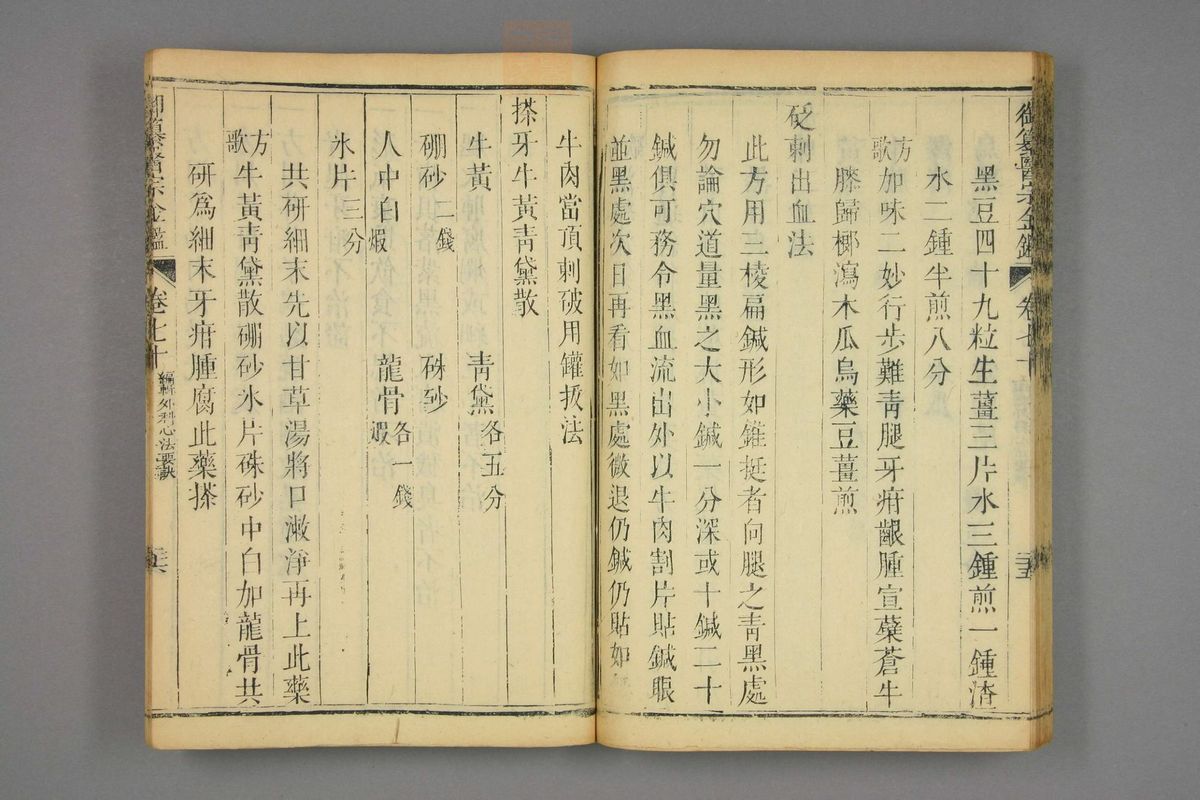 御纂醫宗金鑑 卷七十 二十五
黑豆四十九粒生薑三片水三鍾煎一鍾渣
水二鍾半煎八分
方歌加味二妙行步難青腿牙疳齦腫宣蘗蒼牛
膝歸榔瀉木瓜烏藥豆薑煎
砭刺出血法
此方用三棱扁鍼形如錐挺者向腿之青黑處
勿論穴道量黑之大小鍼一分深或十鍼二十
鍼俱可務令黑血流出外以牛肉割片貼鍼眼
並黑處次日再看如黑處微退仍鍼仍貼如
牛肉當頂刺破用罐拔法
搽牙牛黃青黛散
牛黃 青黛各五分
硼砂二錢 硃砂
人中白煆 龍骨煆各一錢
氷片三分
共研細末先以甘草湯將口漱淨再上此藥
方歌牛黃青黛散硼砂氷片硃砂中白加龍骨共
研爲細末牙疳腫腐此藥搽
御纂醫宗金鑑 卷七十 編輯外科心法要訣 二十六